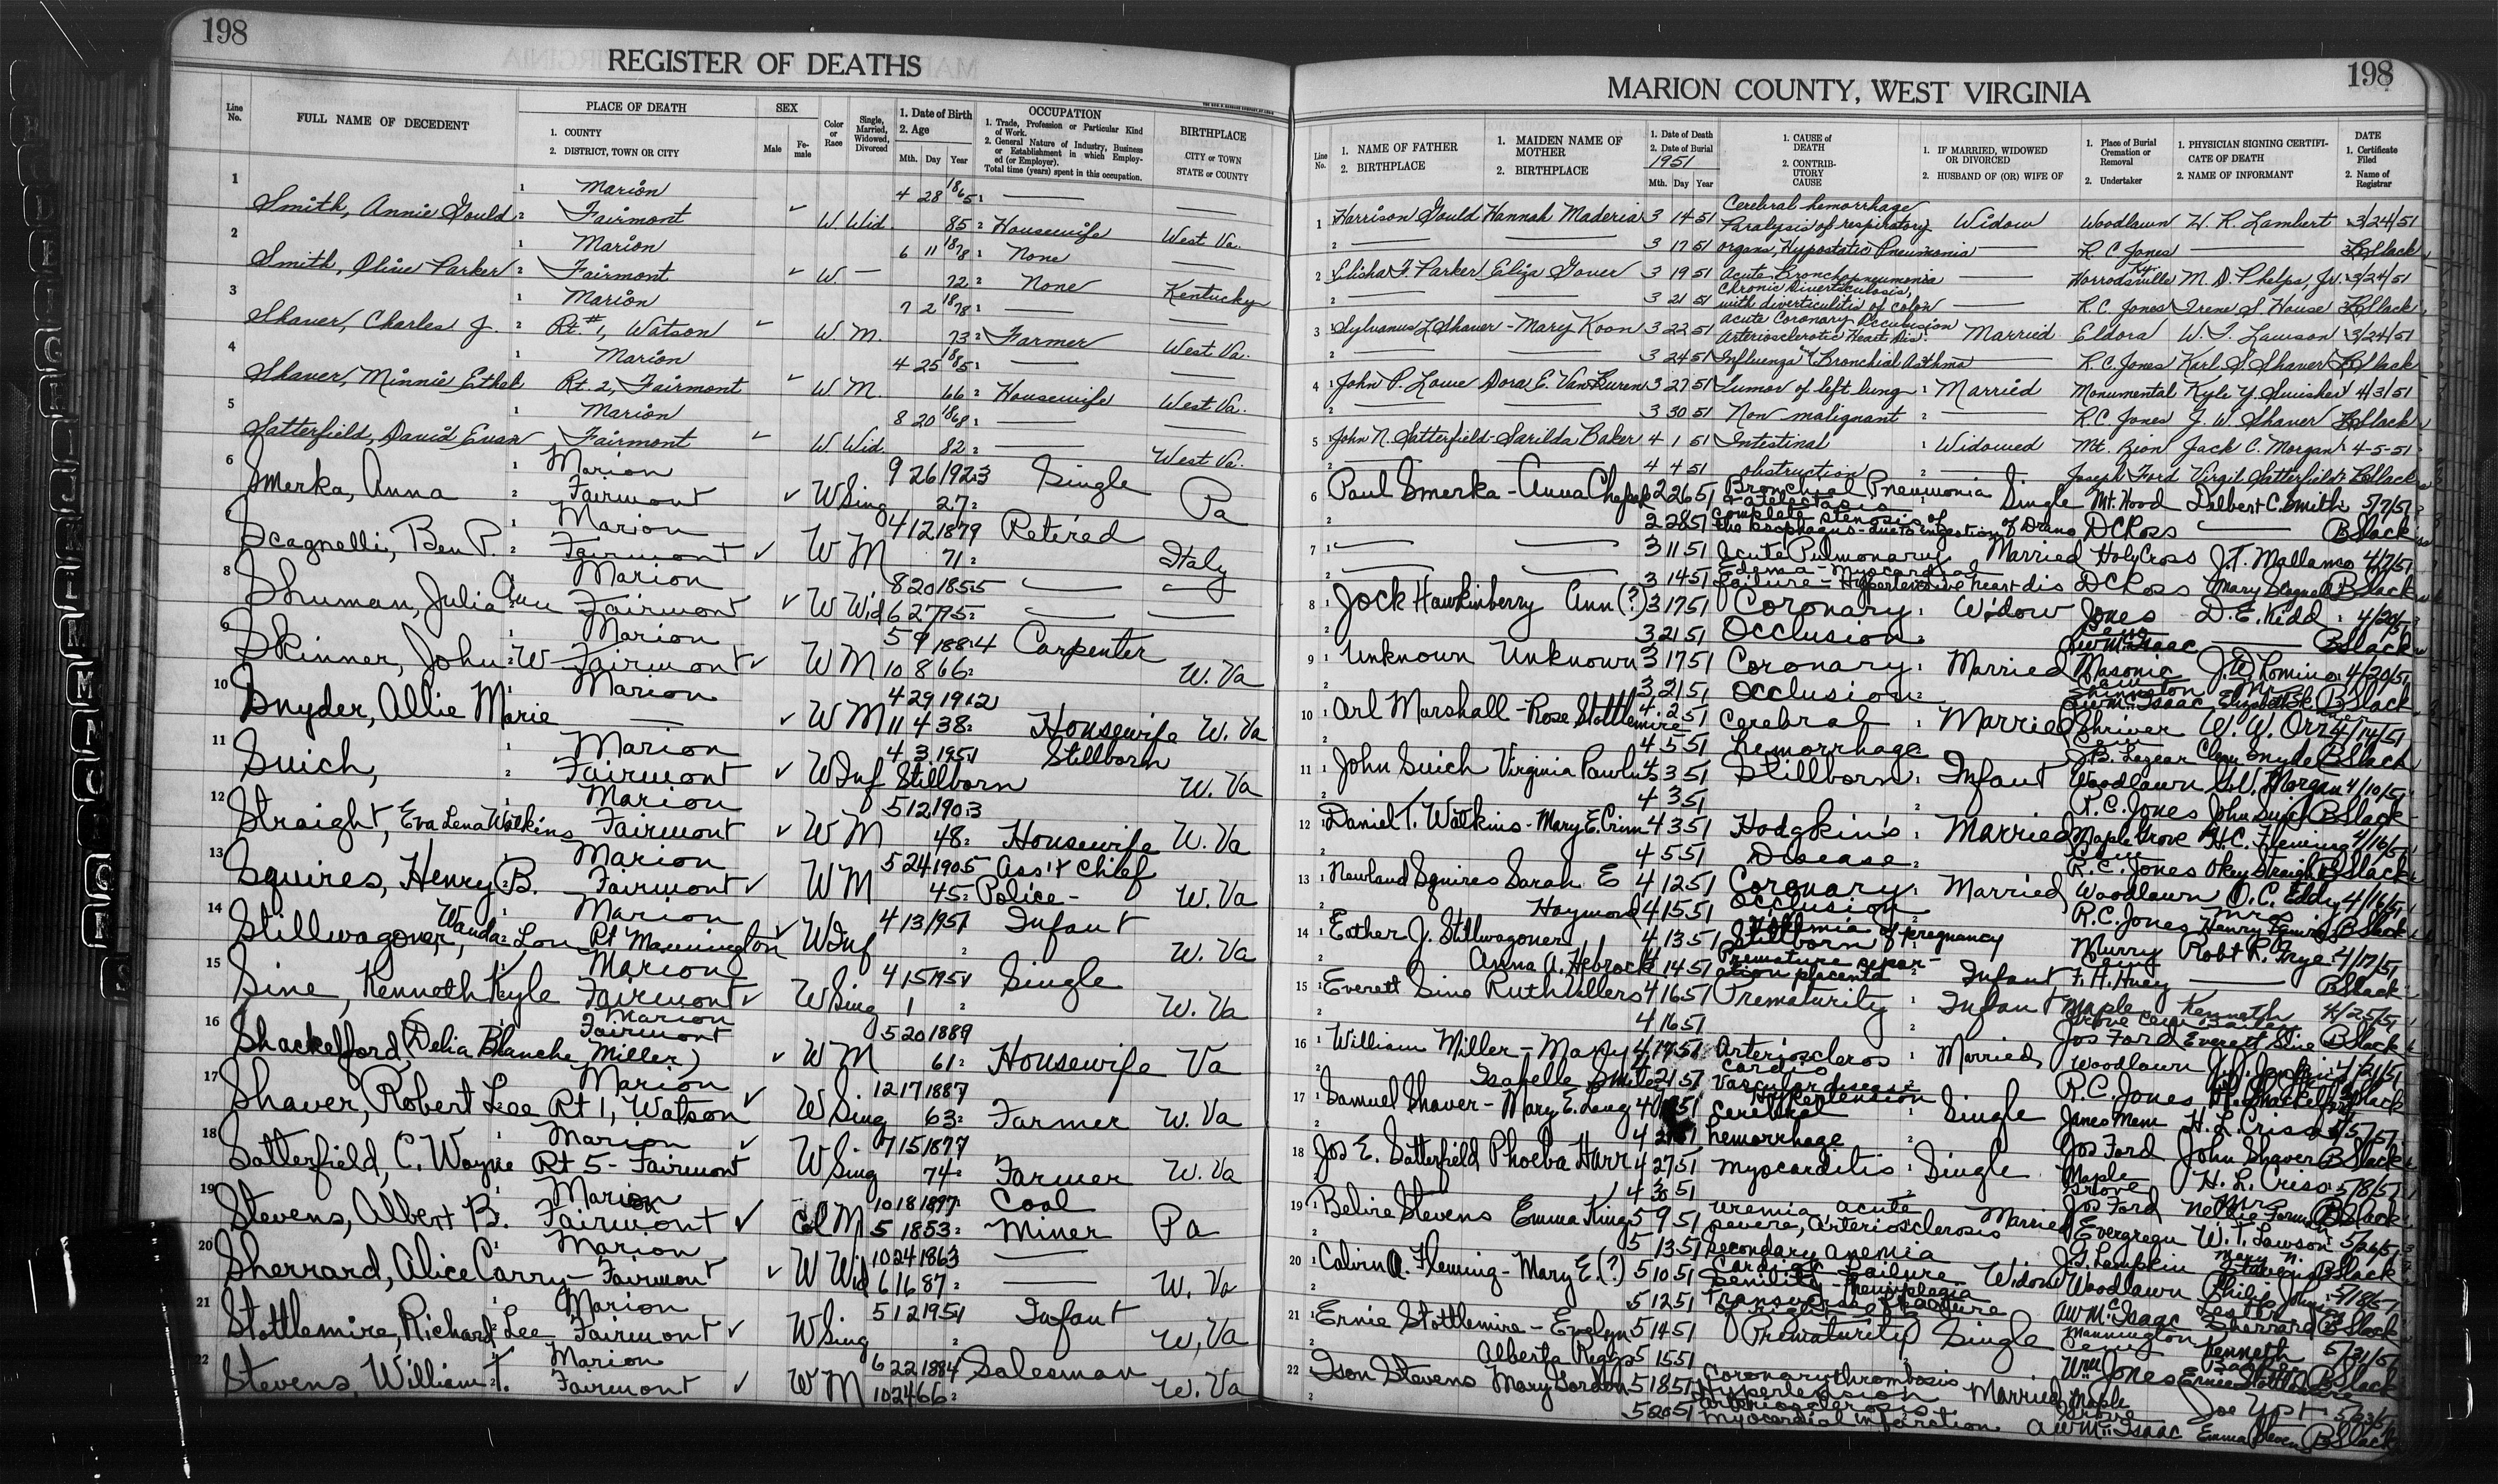 198
REGISTER OF DEATHS
Line No.
FULL NAME OF DECEDENT
PLACE OF DEATH
1. COUNTY
2. DISTRICT, TOWN OR CITY
SEX
Male
Female
Color or Race
Single, Married, Widowed, Divorced
1. Date of Birth
2. Age
Mth. Day Year
OCCUPATION
1. Trade, Profession or Particular Kind of Work.
2. General Nature of Industry, Business or Establishment in which Employed (or Employer).
Total time (years) spent in this occupation.
BIRTHPLACE
CITY or TOWN
STATE or COUNTY
1 Marion 4 28 1865
Smith, Annie Gould Fairmont W. Wid. 85 Housewife West Va.
2 Marion 6 11 1878 None
Smith, Olive Parker Fairmont W. — 72 None Kentucky
3 Marion 7 2 1878
Shaver, Charles J. Rt. #1, Watson W. M. 73 Farmer West Va.
4 Marion 4 25 1885
Shaver, Minnie Ethel Rt. 2, Fairmont W. M. 66 Housewife West Va.
5 Marion 8 20 1868
Satterfield, David Evan Fairmont W. Wid. 82 West Va.
6 Marion 9 26 1923 Single
Smerka, Anna Fairmont W Sing 27 Pa
7 Marion 4 12 1879 Retired
Scagnelli, Ben P. Fairmont W M 71 Italy
8 Marion 8 20 1855
Shuman, Julia Ann Fairmont W Wid 6 27 95
9 Marion 5 9 1884 Carpenter
Skinner, John W Fairmont W M 10 8 66 W. Va
10 Marion 4 29 1912
Snyder, Allie Marie — W M 11 4 38 Housewife W. Va
11 Marion 4 3 1951 Stillborn
Suich, Fairmont W Inf Stillborn W. Va
12 Marion 5 12 1903
Straight, Eva Lena Watkins Fairmont W M 48 Housewife W. Va
13 Marion 5 24 1905 Ass't Chief
Squires, Henry B. Fairmont W M 45 Police - W. Va
14 Marion 4 13 1951 Infant
Stillwagoner, Wanda Lou Rt Mannington W Inf W. Va
15 Marion 4 15 1951 Single
Sine, Kenneth Kyle Fairmont W Sing 1 W. Va
16 Marion Fairmont 5 20 1889
Shackelford, (Delia Blanche Miller) W M 61 Housewife Va
17 Marion 12 17 1887
Shaver, Robert Lee Rt 1, Watson W Sing 63 Farmer W. Va
18 Marion 7 15 1877
Satterfield, C. Wayne Rt 5 - Fairmont W Sing 74 Farmer W. Va
19 Marion 10 18 1897 Coal
Stevens, Albert B. Fairmont Col M 5 18 53 Miner Pa
20 Marion 10 24 1863
Sherrard, Alice Carry - Fairmont W Wid 6 16 87 W. Va
21 Marion 5 12 1951 Infant
Stottlemire, Richard Lee Fairmont W Sing W. Va
22 Marion 6 22 1884 Salesman
Stevens, William T. Fairmont W M 10 24 66 W. Va
198
MARION COUNTY, WEST VIRGINIA
Line No.
1. NAME OF FATHER
2. BIRTHPLACE
1. MAIDEN NAME OF MOTHER
2. BIRTHPLACE
1. Date of Death
2. Date of Burial
1951
Mth. Day Year
1. CAUSE of DEATH
2. CONTRIBUTORY CAUSE
1. IF MARRIED, WIDOWED OR DIVORCED
2. HUSBAND OF (OR) WIFE OF
1. Place of Burial Cremation or Removal
2. Undertaker
1. PHYSICIAN SIGNING CERTIFICATE OF DEATH
2. NAME OF INFORMANT
DATE
1. Certificate Filed
2. Name of Registrar
Cerebral hemorrhage
1 Harrison Gould Hannah Maderia 3 14 51 Paralysis of respiratory Widow Woodlawn H. R. Lambert 3/24/51
3 17 51 organs, Hypostatic Pneumonia R. C. Jones B Slack
2 Elisha F. Parker Eliza Gover 3 19 51 Acute Bronchopneumonia Harrodsville Ky. M. D. Phelps, Jr. 3/24/51
Chronic Diverticulosis,
3 21 51 with diverticulitis of colon R.C. Jones Irene S. House B Slack
Acute Coronary Occulusion
3 Sylvanus L Shaver - Mary Koon 3 22 51 Arteriosclerotic Heart Dis. Married Eldora W. T. Lawson 3/24/51
3 24 51 Influenza & Bronchial Asthma R.C. Jones Karl S. Shaver B Slack
4 John P. Lowe Dora E. VanBuren 3 27 51 Tumor of left lung Married Monumental Kyle Y. Swisher 4/3/51
3 30 51 Non malignant R.C. Jones J. W. Shaver B Slack
5 John N. Satterfield - Sarilda Baker 4 1 51 Intestinal Widowed Mt. Zion Jack C. Morgan 4-5-51
4 4 51 obstruction Joseph Ford Virgil Satterfield B Slack
6 Paul Smerka - Anna 2 26 51 Bronchial Pneumonia Single Mt. Hood Delbert C. Smith 5/7/51
Atelectasis
complete stenosis of
2 28 51 the esophagus - due to ingestion of Drano D C Ross B Slack
7 3 11 51 Acute Pulmonary Married Holy Cross J. T. Mallamo 4/7/51
Edema - Myocardial
3 14 51 failure - Hypertensive heart dis D C Ross Mary Scagnelli B Slack
8 Jock Hawkinberry Ann (?) 3 17 51 Coronary Widow Jones Cem D. E. Kidd 4/20/51
3 21 51 Occlusion A W McIsaac B Slack
9 Unknown Unknown 3 17 51 Coronary Married Masonic J. W. Romino 4/20/51
3 21 51 Occlusion Shinnston A W McIsaac Mrs. Elizabeth Sk B Slack
10 Arl Marshall - Rose Stottlemire 4 2 51 Cerebral Married Shriver Cem W. W. Orr 4/14/51
4 5 51 hemorrhage J B. Lazear Clem Snyder B Slack
11 John Suich Virginia 4 3 51 Stillborn Infant Woodlawn G. V. Morgan 4/10/51
4 3 51 R. C. Jones John Suich B Slack
12 Daniel T. Watkins - Mary E. Crim 4 3 51 Hodgkin's Married Maple Grove Cem H. C. Fleming 4/16/51
4 5 51 Disease R. C. Jones Okey Straight B Slack
13 Newland Squires Sarah E 4 12 51 Coronary Married Woodlawn O. C. Eddy 4/16/51
Haymond 4 15 51 Occlusion R.C. Jones Mrs Henry Squires B Slack
14 Eather J. Stillwagoner 4 13 51 Stillborn Toxemia of pregnancy Murry Cem Robt R. Frye 4/17/51
Anna A. Hebrock 4 14 51 Premature separation placenta Infant F. H. Huey B Slack
15 Everett Sine Ruth Villers 4 16 51 Prematurity Infant Maple Grove Cem Kenneth Bailey 4/25/51
4 16 51 Jos Ford Everett Sine B Slack
16 William Miller - Mary 4 19 51 Arterioscleros Married Woodlawn 4/21/51
Isabelle cardio vascular disease R.C. Jones B Slack
Hypertension
17 Samuel Shaver - Mary E. Lang 4 51 Cerebral Single Jones Mem H. L. Criss
4 21 51 hemorrhage Jos Ford John Shaver B Slack
18 Jos E. Satterfield Phoeba Harr 4 27 51 Myocarditis Single Maple Grove H. L. Criss 5/8/51
4 30 51 Jos Ford Mrs Nellie B Slack
19 Belire Stevens Emma King 5 9 51 uremia acute Married Evergreen W. T. Lawson 5/26/51
severe, arteriosclerosis
5 13 51 secondary anemia J. G. Lampkin Mary N. Stevens B Slack
20 Calvin A. Fleming - Mary E. (?) 5 10 51 Cardiac failure Widow Woodlawn Philip Johnson 5/18/51
Senility - Hemiplegia
5 12 51 Transverse fracture A W McIsaac Leslie Sherrard B Slack
21 Ernie Stottlemire - Evelyn 5 14 51 Prematurity Single Mannington Cem Kenneth 5/21/51
Alberta Riggs 5 15 51 Wm Jones Ernie Stottlemire B Slack
22 Ison Stevens Mary Gordon 5 18 51 Coronary thrombosis Married Maple Grove Joe Yost 5/23/51
Hypertension
arteriosclerosis
5 20 51 myocardial infarction A W McIsaac Emma Stevens B Slack